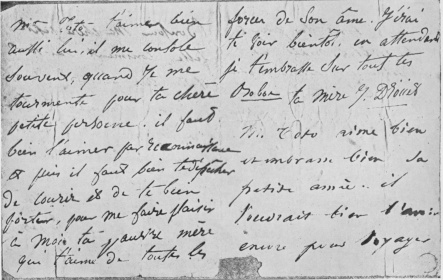 Mr Toto t'aime bien
aussi lui, il me console
souvent, quand je me
tourmente pour ta chère
petite personne. il faut
bien l'aimer par reconnaissance
et puis il faut bien te dépêcher
de courir et de te bien
porter, pour me faire plaisir
à moi, ta pauvre mère
qui t'aime de toutes les
forces de son âme. J'irai
te voir bientôt, en attendant
je t'embrasse sur toutes les
ta mère J. Drouet
Mr Toto aime bien
et embrasse bien sa
petite amie. il
voudrait bien l'avoir
encore pour voyager